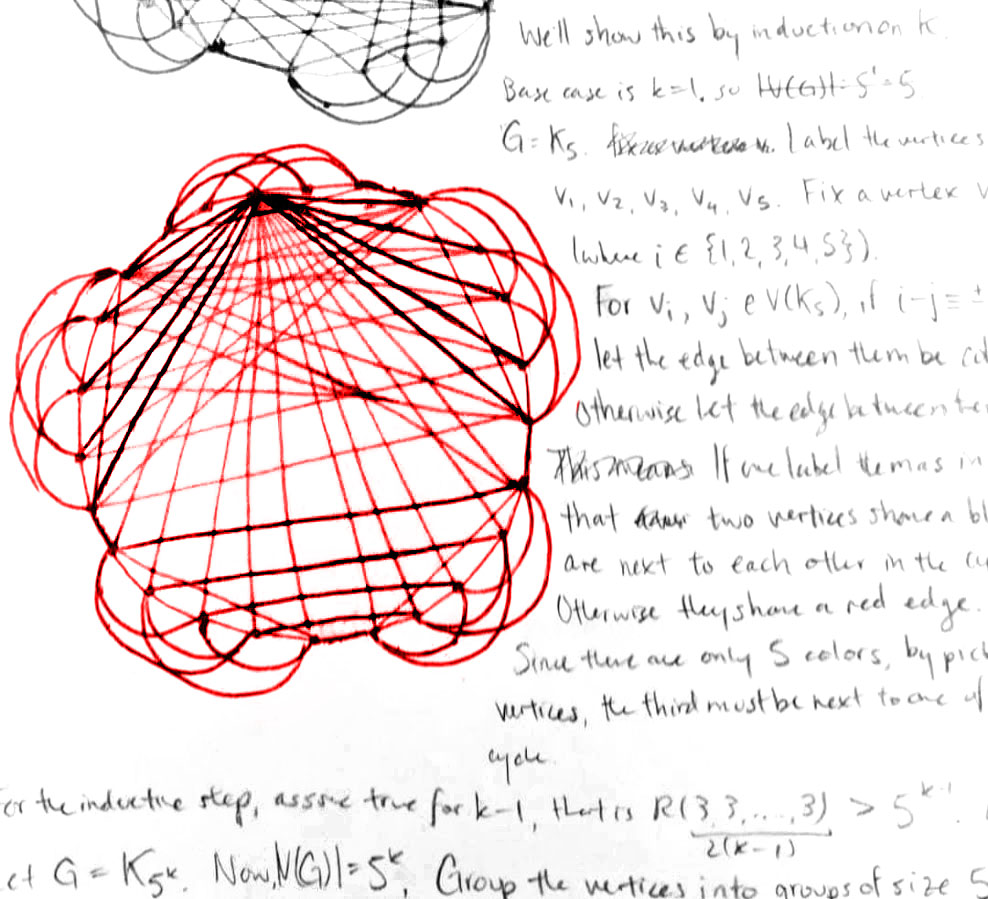 We'll show this by induction on k.
Base case is k=1, so |V(G)|=5¹=5
G=K₅. label the vertices
v₁, v₂, v₃, v₄, v₅. Fix a vertex v
(where i ∈ {1,2,3,4,5}).
For vᵢ, vⱼ ∈ V(K₅), if i-j ≡ ±
let the edge between them be
Otherwise let the edge between
If we label them as in
that two vertices share a bl
are next to each other in the
Otherwise they share a red edge.
Since there are only 5 colors, by pick
vertices, the third must be next to one of
cycle.
For the inductive step, assume true for k-1, that is R(3,3,...,3) > 5ᵏ⁻¹.
2(k-1)
Let G = K₅ᵏ. Now, |V(G)|=5ᵏ. Group the vertices into groups of size 5